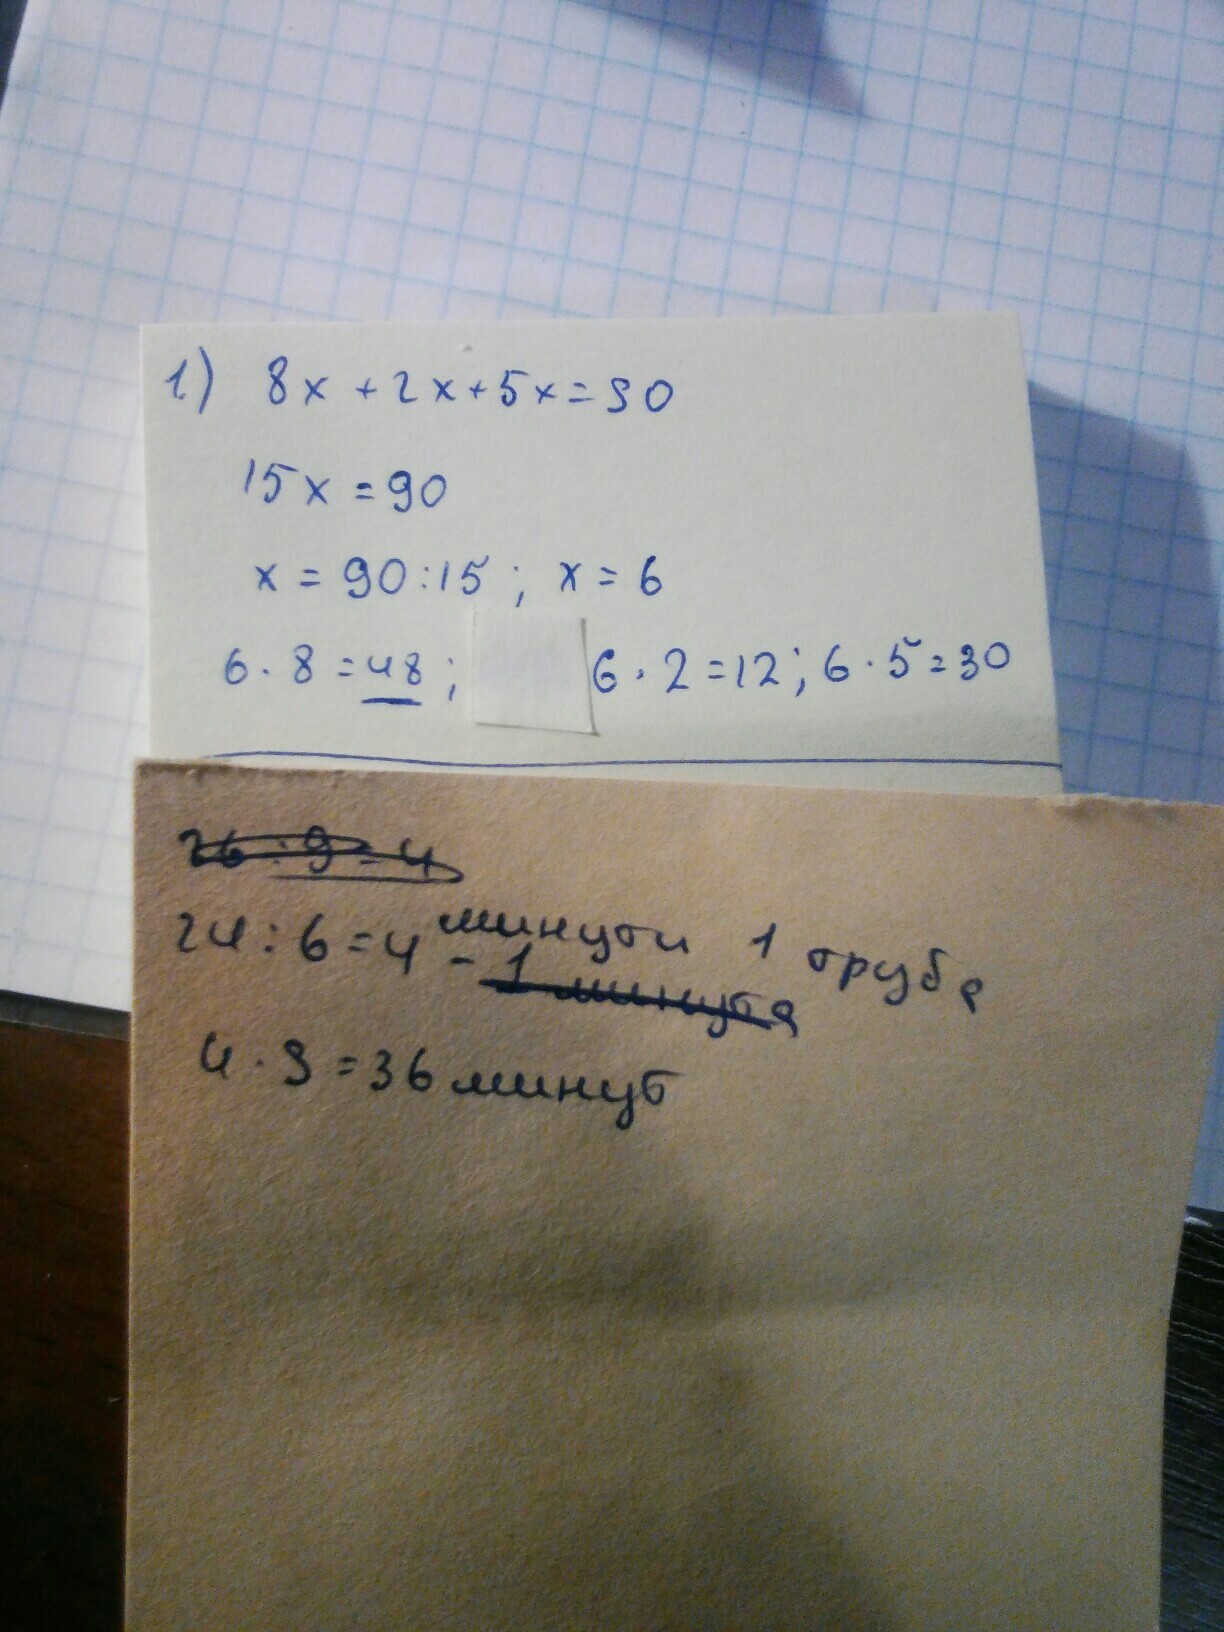 1) 8x + 2x + 5x = 90
15x = 90
x = 90 : 15 ; x = 6
6 · 8 = 48 ; 6 · 2 = 12 ; 6 · 5 = 30
36 : 9 = 4
24 : 6 = 4 минуты 1 труба
- 1 минута
4 · 9 = 36 минут